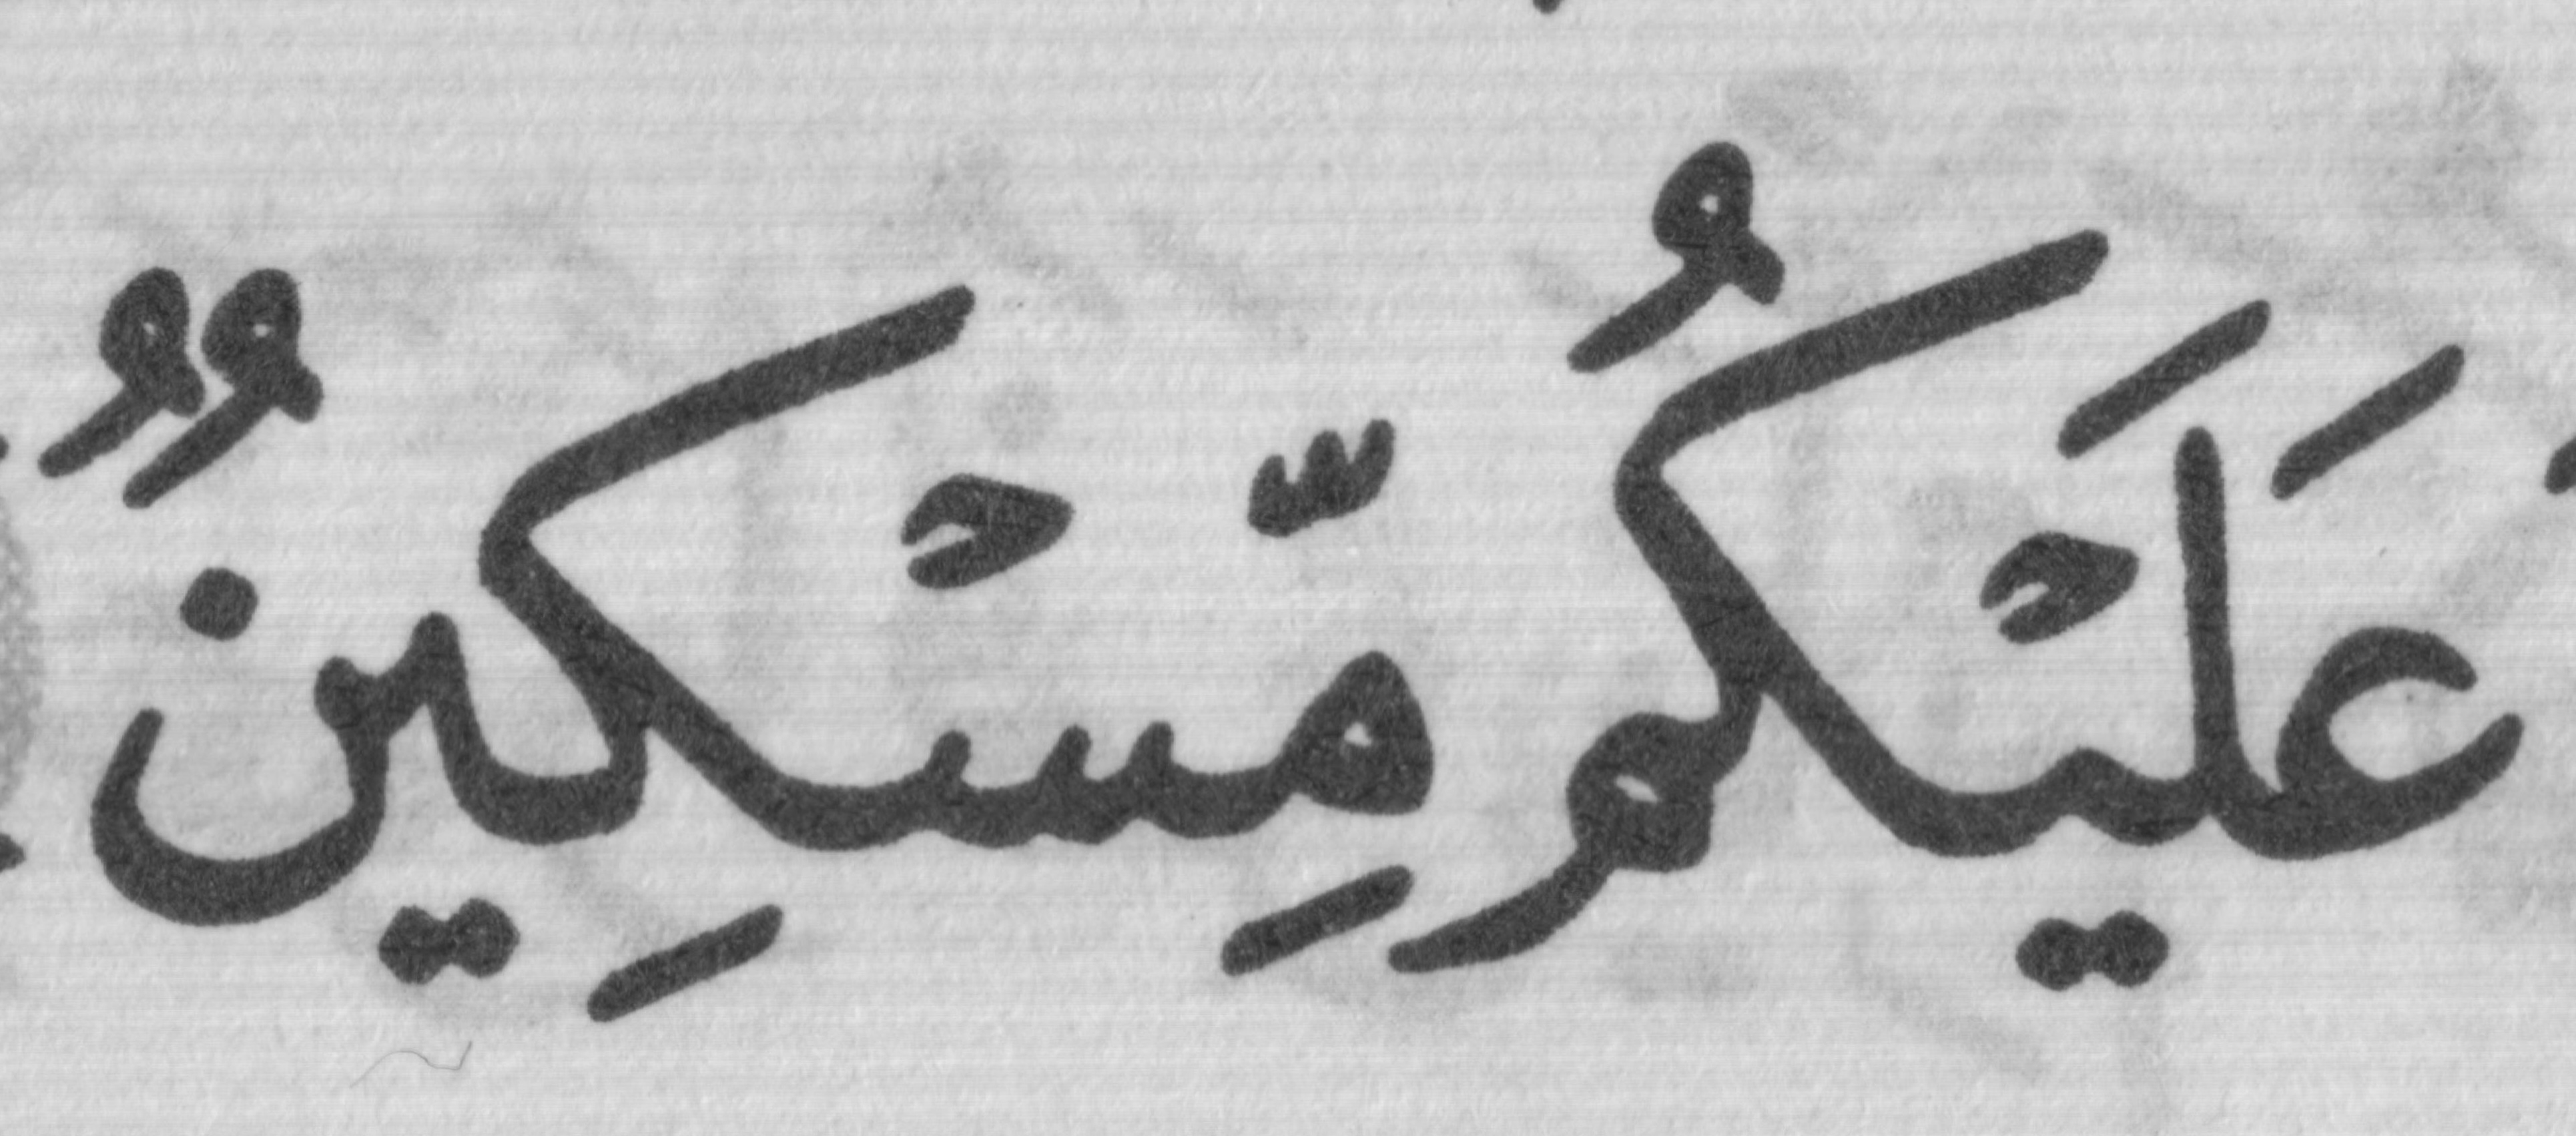 عَلَيْكُم مِّسْكِينٌ